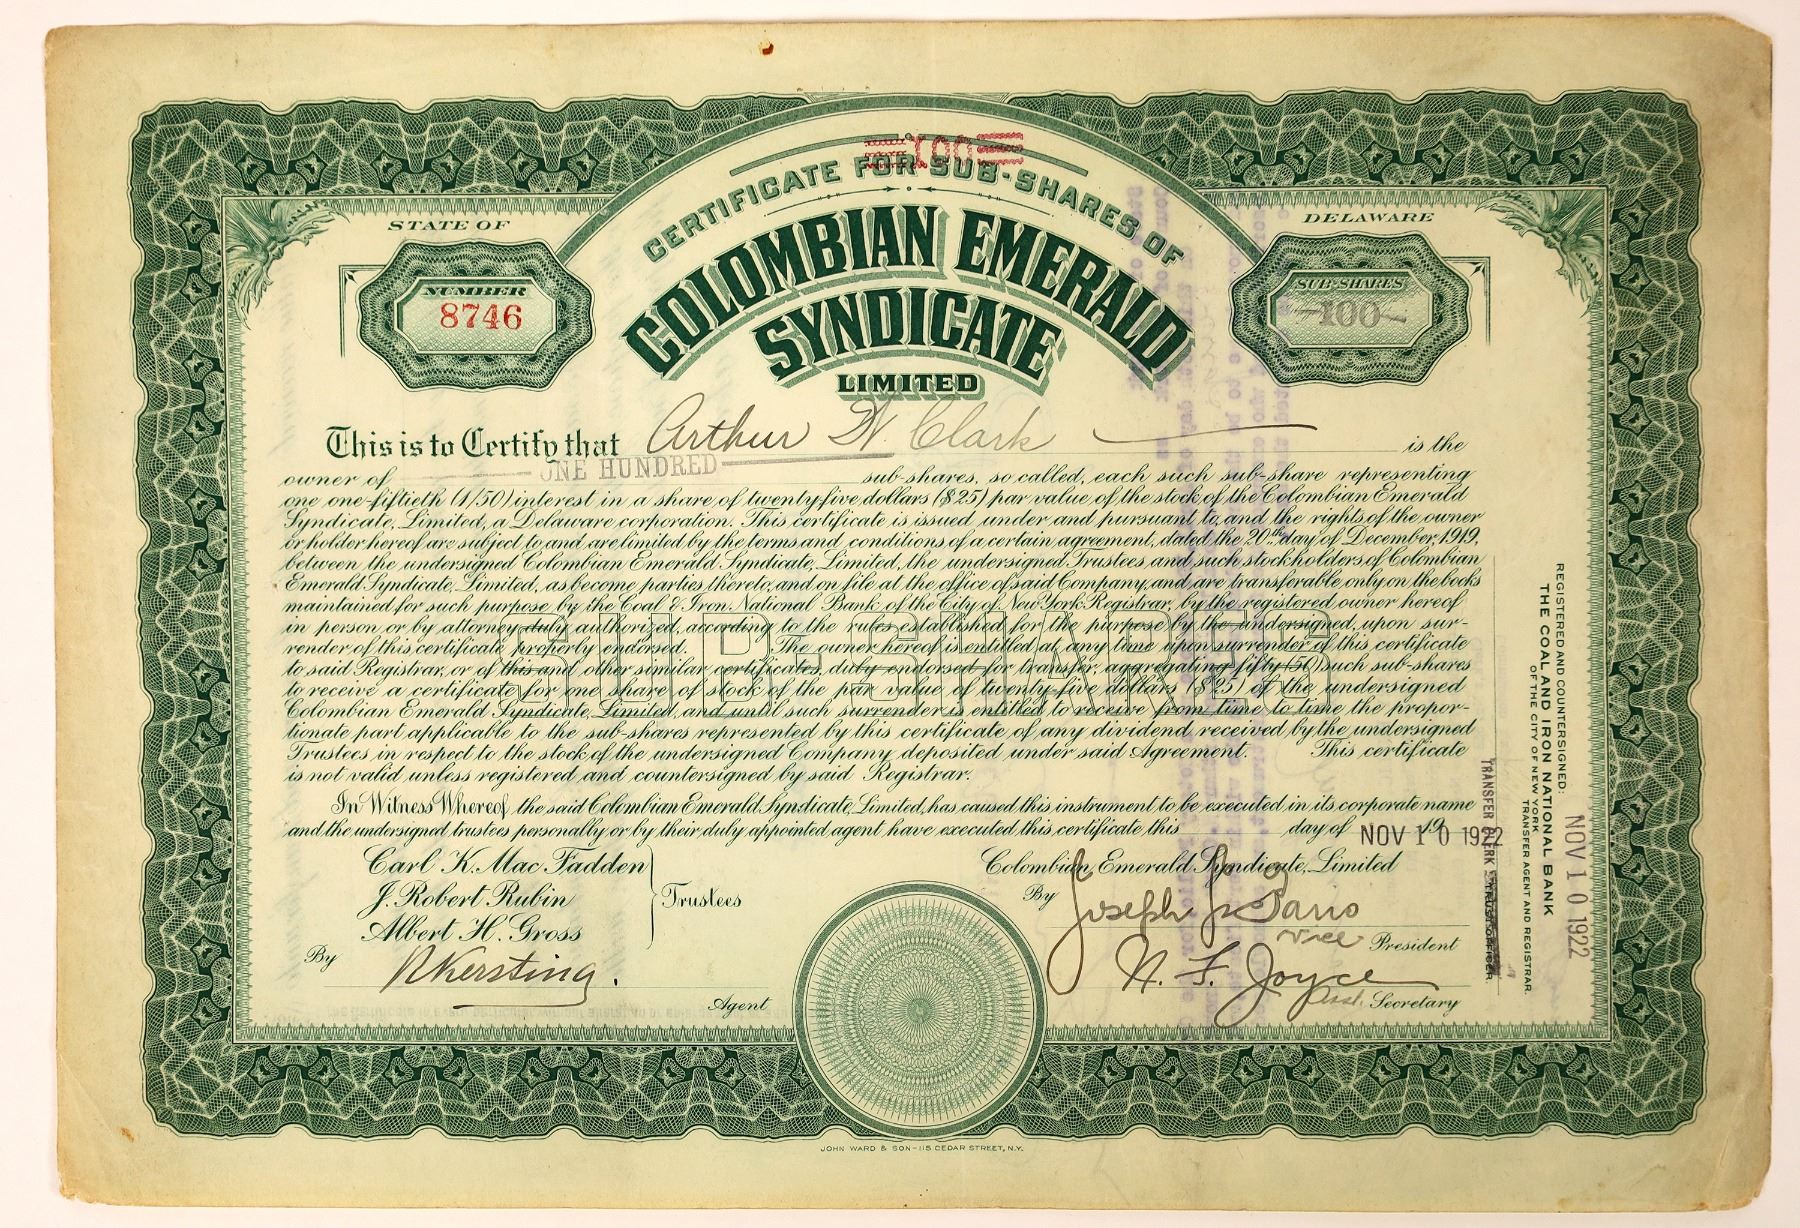 100
CERTIFICATE FOR SUB-SHARES OF
STATE OF
DELAWARE
COLOMBIAN EMERALD
SYNDICATE
LIMITED
NUMBER
8746
SUB-SHARES
-100-
This is to Certify that Arthur W. Clark is the
owner of ONE HUNDRED sub-shares, so called, each such sub-share representing
one one-fiftieth (1/50) interest in a share of twenty-five dollars ($25) par value of the stock of the Colombian Emerald
Syndicate, Limited, a Delaware corporation. This certificate is issued under and pursuant to, and the rights of the owner
or holder hereof are subject to and are limited by the terms and conditions of a certain agreement, dated the 20th day of December, 1919,
between the undersigned Colombian Emerald Syndicate, Limited, the undersigned Trustees and such stockholders of Colombian
Emerald Syndicate, Limited, as become parties thereto, and on file at the office of said Company, and are transferable only on the books
maintained for such purpose by the Coal & Iron National Bank of the City of New York, Registrar, by the registered owner hereof
in person or by attorney duly authorized, according to the rules established for the purpose by the undersigned, upon sur-
render of this certificate properly endorsed. The owner hereof is entitled at any time upon surrender of this certificate
to said Registrar, or of this and other similar certificates, duly endorsed for transfer, aggregating fifty (50) such sub-shares
to receive a certificate for one share of stock of the par value of twenty-five dollars ($25) of the undersigned
Colombian Emerald Syndicate, Limited, and until such surrender is entitled to receive from time to time the propor-
tionate part applicable to the sub-shares represented by this certificate of any dividend received by the undersigned
Trustees in respect to the stock of the undersigned Company deposited under said Agreement. This certificate
is not valid unless registered and countersigned by said Registrar.
SUB-SHARES
In Witness Whereof, the said Colombian Emerald Syndicate, Limited, has caused this instrument to be executed in its corporate name
and the undersigned trustees personally or by their duly appointed agent have executed this certificate this day of NOV 10 1922 19
Carl K. Mac Fadden
J. Robert Rubin
Albert H. Gross
Trustees
By Kersting.
Agent
Colombian Emerald Syndicate, Limited
By Joseph
Vice President
N. F. Joyce
Asst. Secretary
REGISTERED AND COUNTERSIGNED:
THE COAL AND IRON NATIONAL BANK
OF THE CITY OF NEW YORK
TRANSFER AGENT AND REGISTRAR.
NOV 10 1922
TRANSFER CLERK
TRUST OFFICER.
JOHN WARD & SON-115 CEDAR STREET, N.Y.